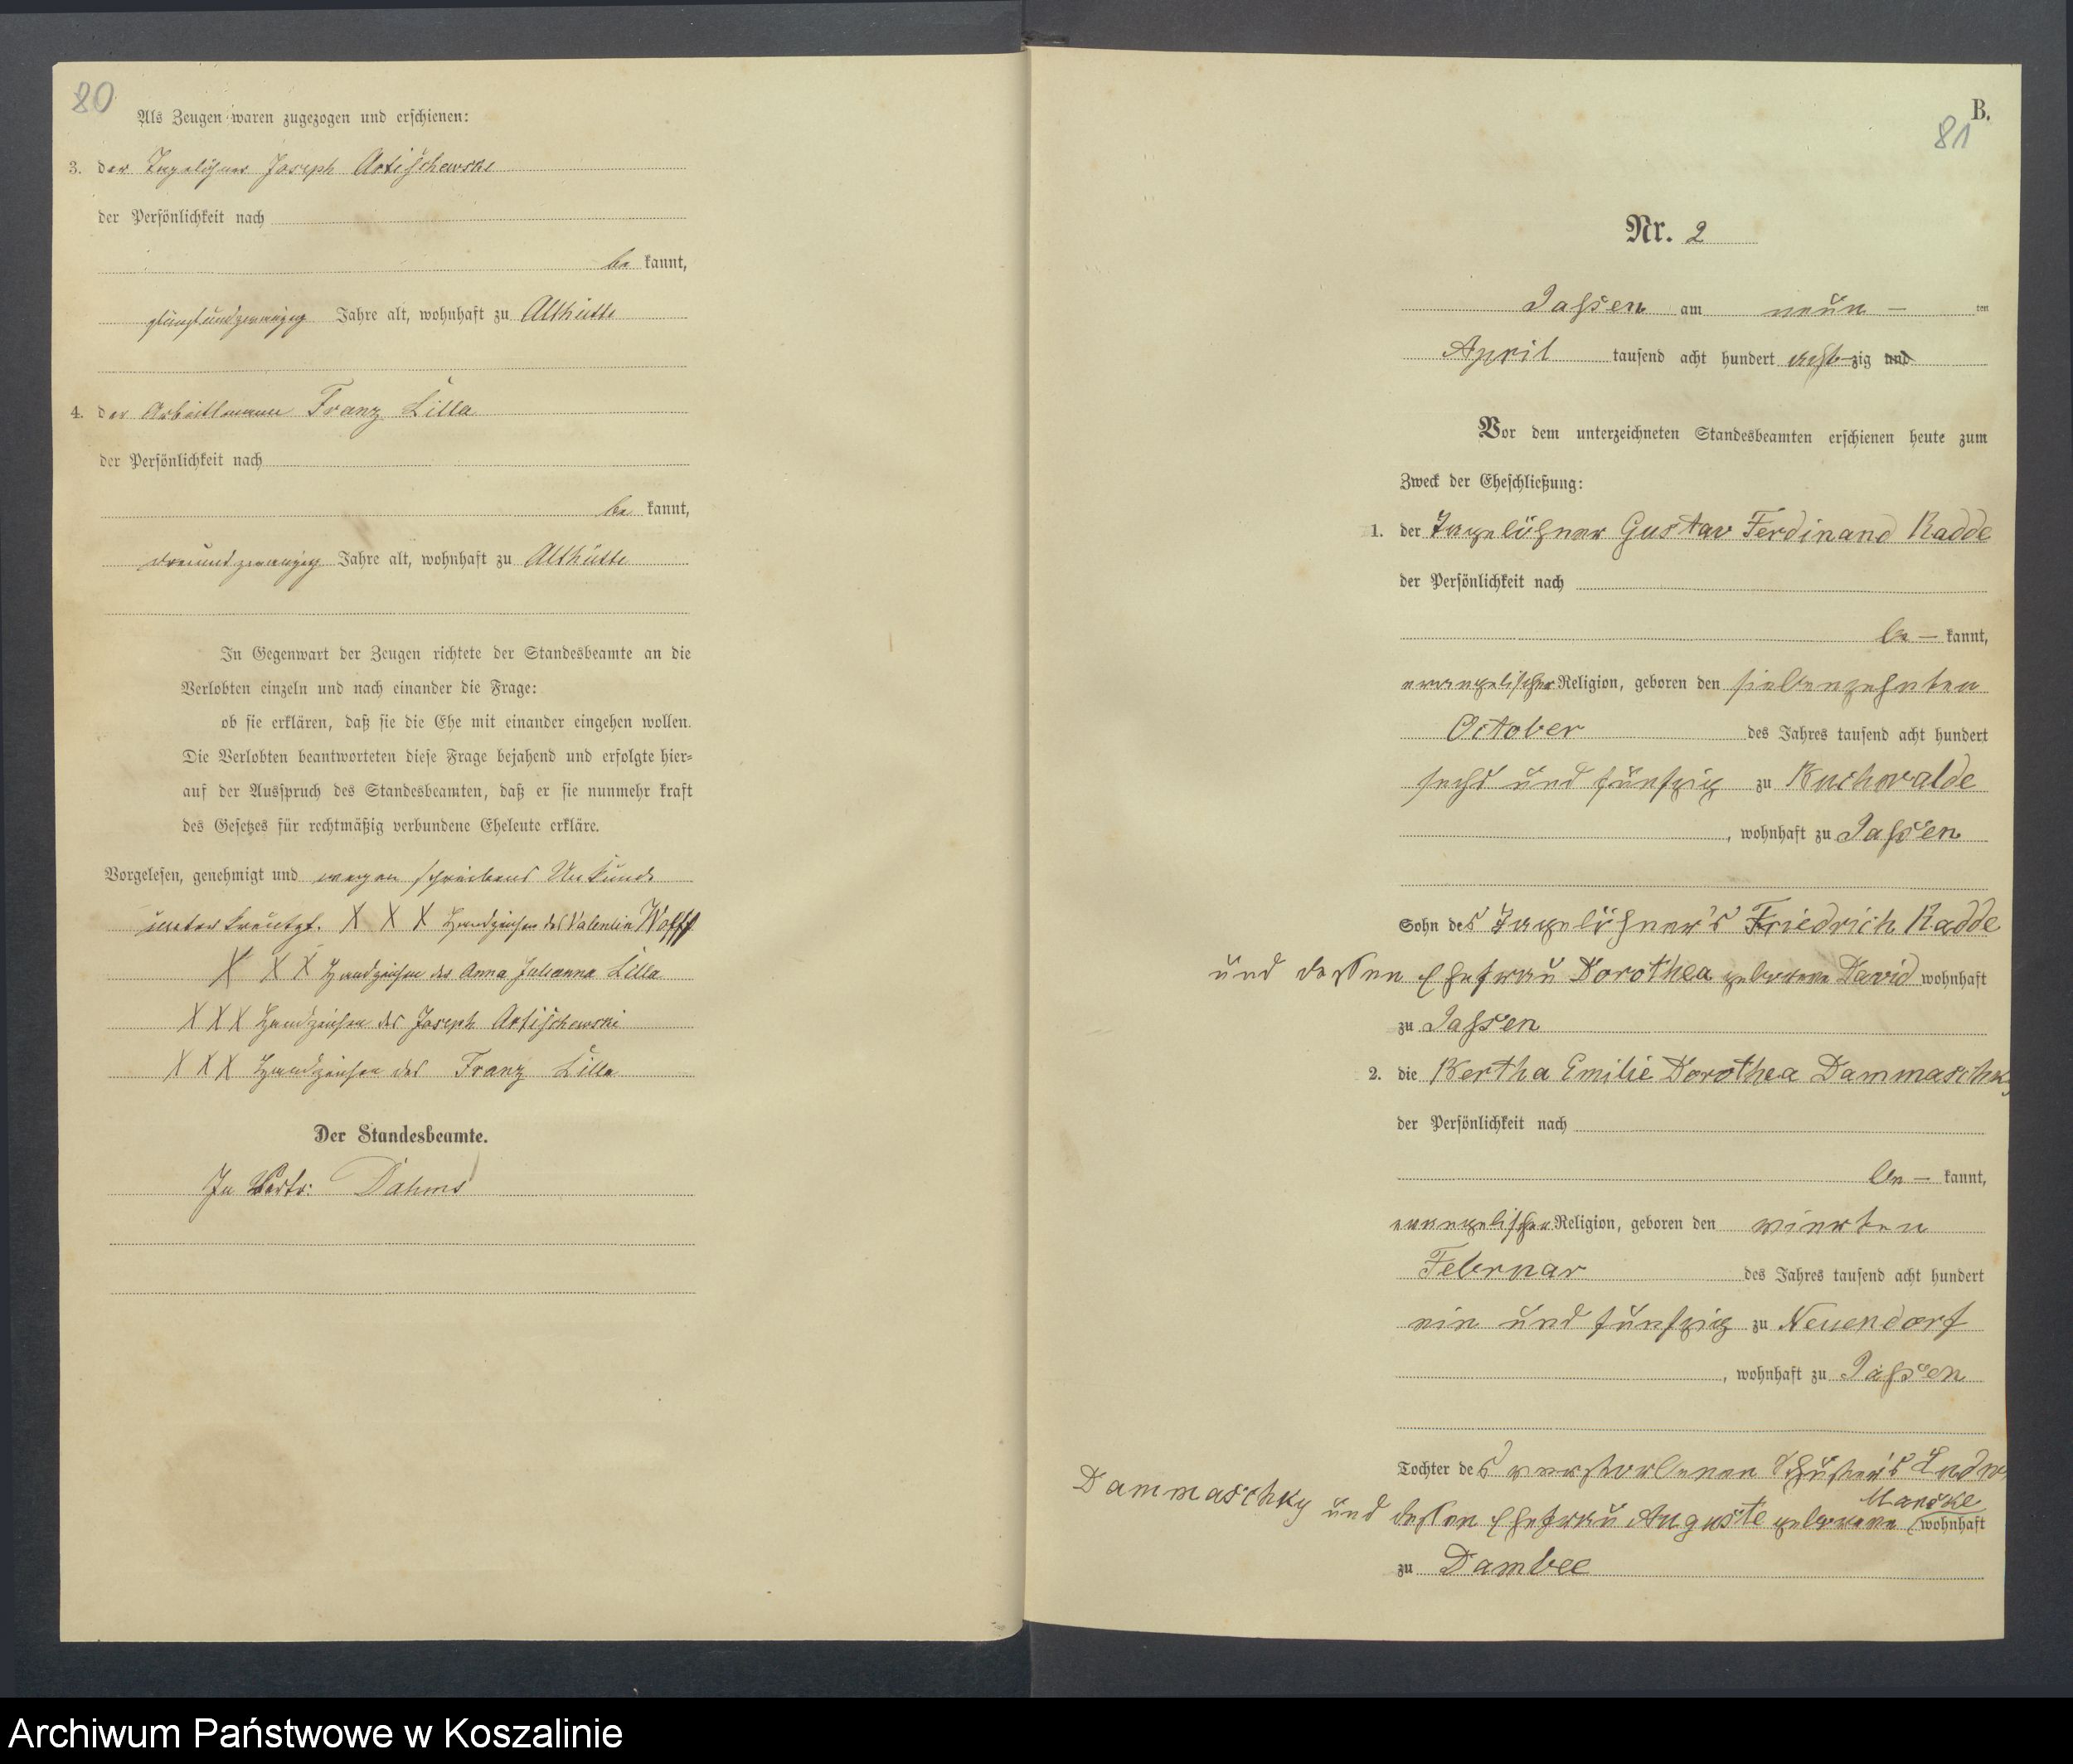 80
Als Zeugen waren zugezogen und erschienen:
3. der Tagelöhner Joseph Artischewski
der Persönlichkeit nach
be kannt,
fünfundzwanzig Jahre alt, wohnhaft zu Althütte
4. der Arbeitsmann Franz Lilla
der Persönlichkeit nach
be kannt,
dreiundzwanzig Jahre alt, wohnhaft zu Althütte
In Gegenwart der Zeugen richtete der Standesbeamte an die
Verlobten einzeln und nach einander die Frage:
ob sie erklären, daß sie die Ehe mit einander eingehen wollen.
Die Verlobten beantworteten diese Frage bejahend und erfolgte hier=
auf der Ausspruch des Standesbeamten, daß er sie nunmehr kraft
des Gesetzes für rechtmäßig verbundene Eheleute erkläre.
Vorgelesen, genehmigt und wegen Schreibens Unkunde
unterkreuzt. X X X Handzeichen des Valentin Wolff
X X X Handzeichen der Anna Julianna Lilla
X X X Handzeichen des Joseph Artischewski
X X X Handzeichen des Franz Lilla
Der Standesbeamte.
In Vertr: Dahms
B.
81
Nr. 2
Jassen am neun – ten
April tausend acht hundert acht-zig und
Vor dem unterzeichneten Standesbeamten erschienen heute zum
Zweck der Eheschließung:
1. der Tagelöhner Gustav Ferdinand Radde
der Persönlichkeit nach
be – kannt,
evangelischer Religion, geboren den siebenzehnten
October des Jahres tausend acht hundert
sechs und fünfzig zu Buchwalde
, wohnhaft zu Jassen
Sohn des Tagelöhner's Friedrich Radde
und dessen Ehefrau Dorothea geborene David wohnhaft
zu Jassen
2. die Bertha Emilie Dorothea Dammaschky
der Persönlichkeit nach
be – kannt,
evangelischer Religion, geboren den vierten
Februar des Jahres tausend acht hundert
ein und fünfzig zu Neuendorf
, wohnhaft zu Jassen
Tochter des verstorbenen Schuster's
Dammaschky und dessen Ehefrau Auguste geborene Manske wohnhaft
zu Dambee
Archiwum Państwowe w Koszalinie